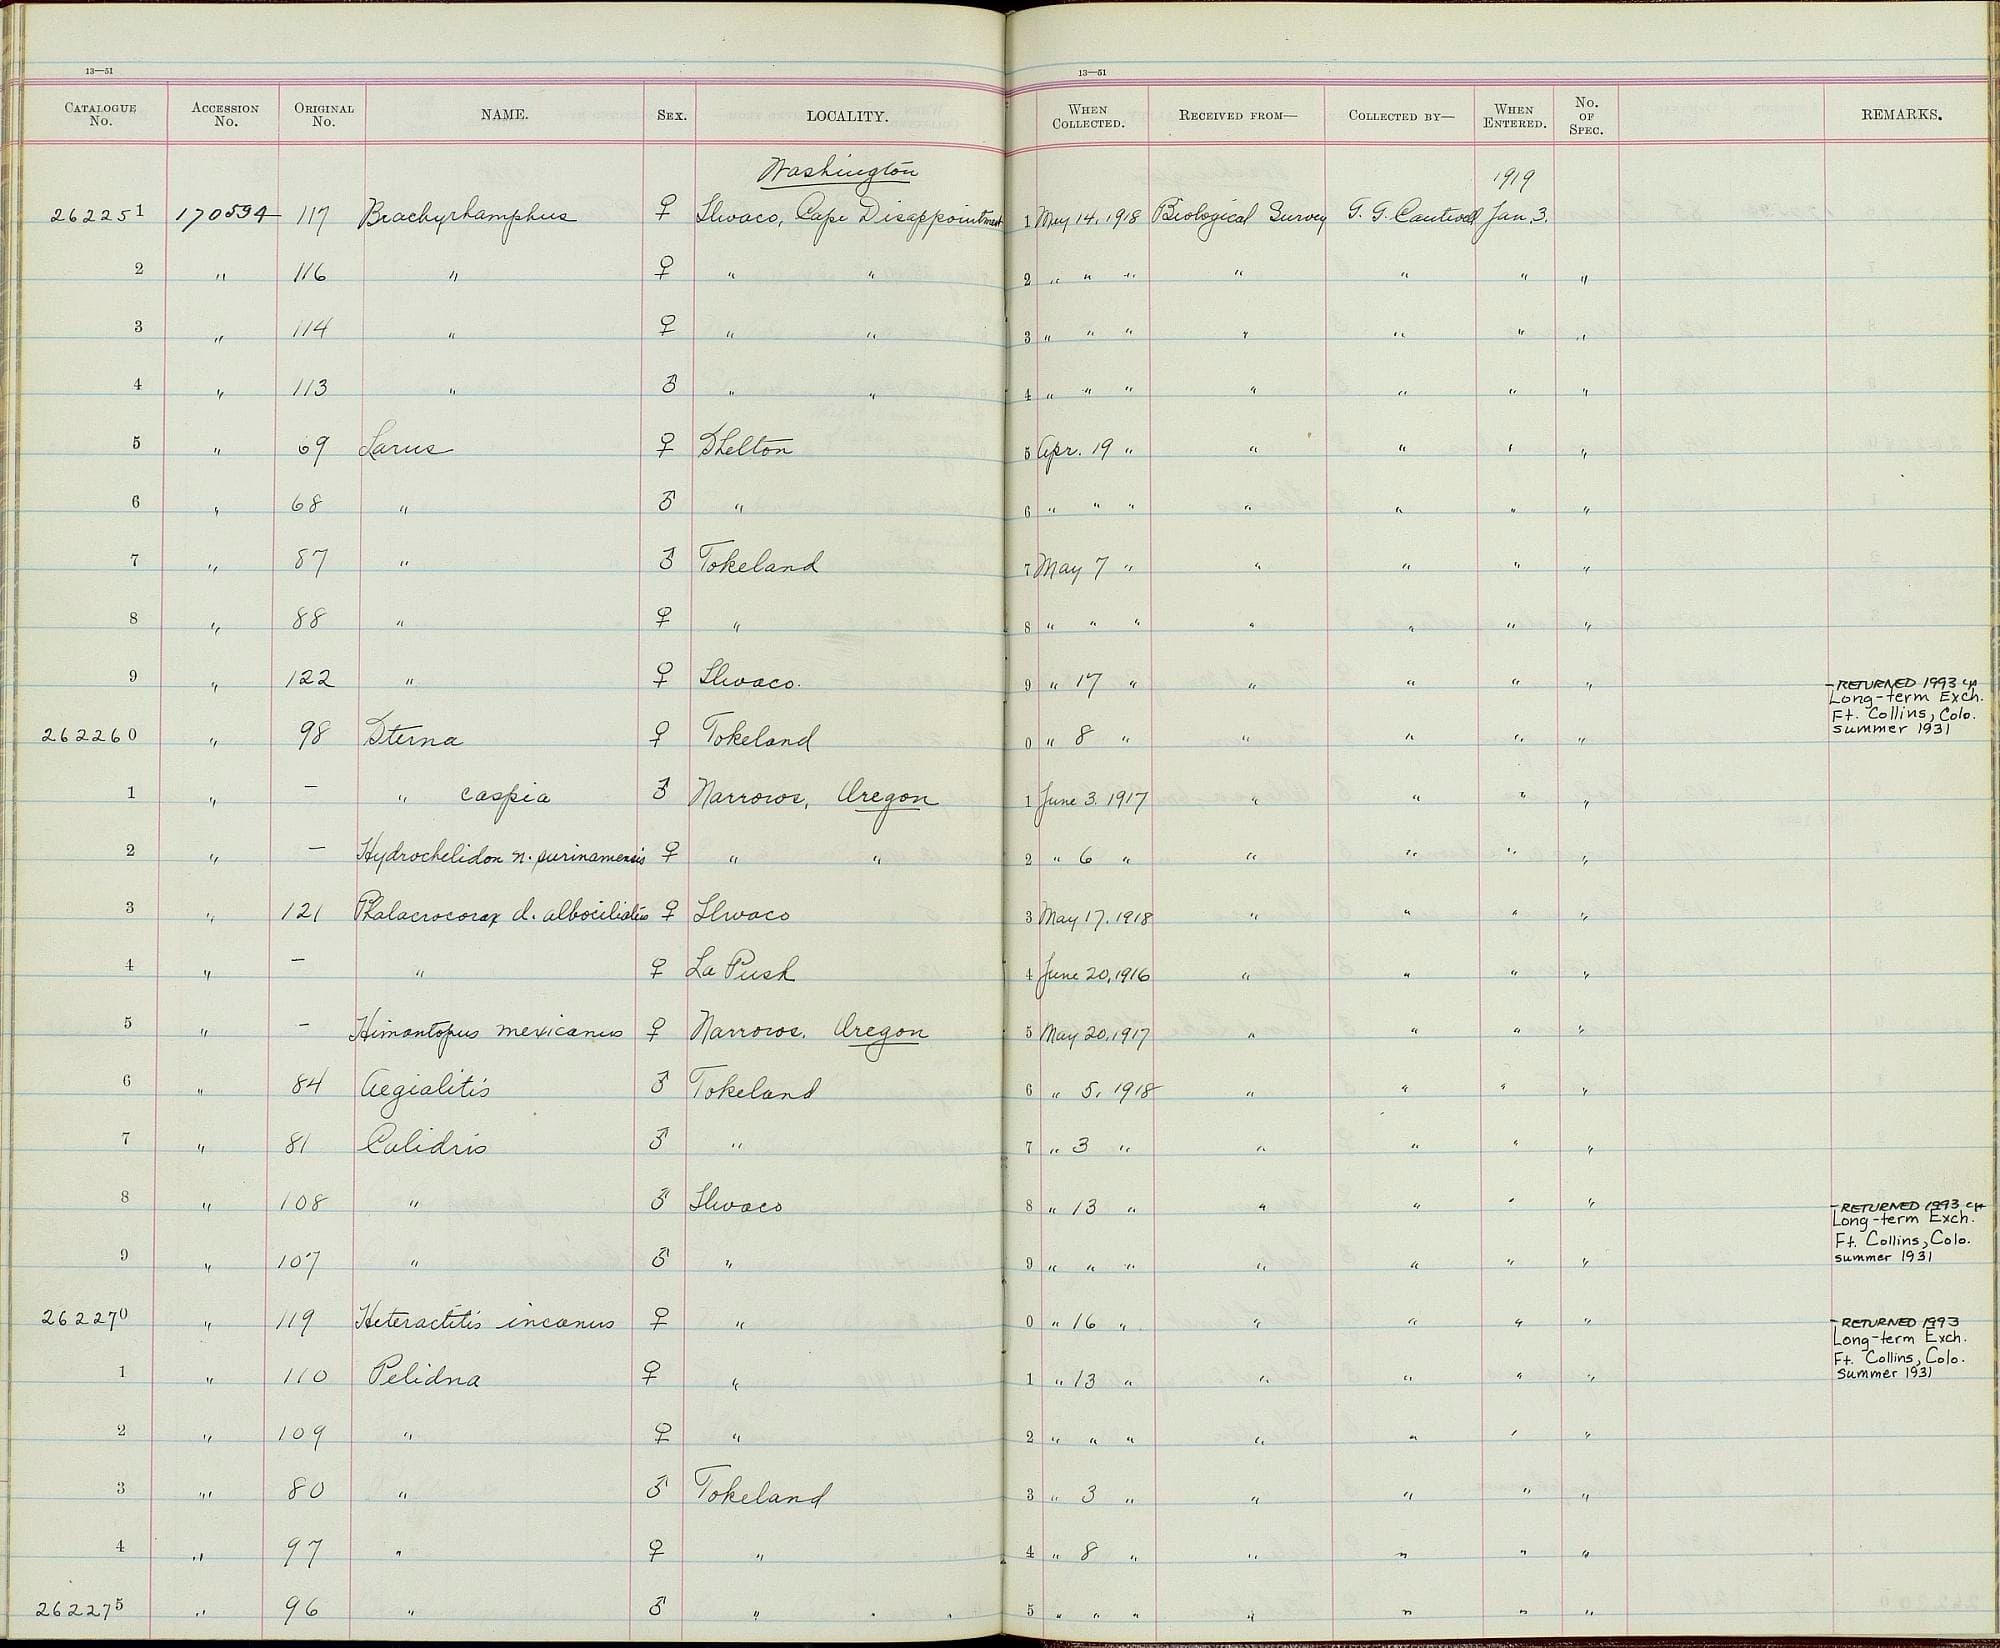 13—51
13—51
CATALOGUE No. ACCESSION No. ORIGINAL No. NAME. SEX. LOCALITY. WHEN COLLECTED. RECEIVED FROM— COLLECTED BY— WHEN ENTERED. No. OF SPEC. REMARKS.
Washington 1919
262251 170594 117 Brachyrhamphus ♀ Ilwaco, Cape Disappointment 1 May 14, 1918 Biological Survey G. G. Cantwell Jan. 3.
2 " 116 " ♀ " " 2 " " " " " " "
3 " 114 " ♀ " " 3 " " " " " " "
4 " 113 " ♂ " " 4 " " " " " " "
5 " 69 Larus ♀ Shelton 5 Apr. 19 " " " " "
6 " 68 " ♂ " 6 " " " " " " "
7 " 87 " ♂ Tokeland 7 May 7 " " " " "
8 " 88 " ♀ " 8 " " " " " " "
9 " 122 " ♀ Ilwaco. 9 " 17 " " " " " - RETURNED 1993
Long-term Exch.
Ft. Collins, Colo.
summer 1931
262260 " 98 Sterna ♀ Tokeland 0 " 8 " " " " "
1 " — " caspia ♂ Narrows, Oregon 1 June 3. 1917 " " " "
2 " — Hydrochelidon n. surinamensis ♀ " " 2 " 6 " " " " "
3 " 121 Phalacrocorax d. albociliatus ♀ Ilwaco 3 May 17, 1918 " " " "
4 " — " ♀ La Push 4 June 20, 1916 " " " "
5 " — Himantopus mexicanus ♀ Narrows, Oregon 5 May 20, 1917 " " " "
6 " 84 Aegialitis ♂ Tokeland 6 " 5, 1918 " " " "
7 " 81 Calidris ♂ " 7 " 3 " " " " "
8 " 108 " ♂ Ilwaco 8 " 13 " " " " " - RETURNED 1993
Long-term Exch.
Ft. Collins, Colo.
summer 1931
9 " 107 " ♂ " 9 " " " " " " "
262270 " 119 Heteractitis incanus ♀ " 0 " 16 " " " " " - RETURNED 1993
Long-term Exch.
Ft. Collins, Colo.
summer 1931
1 " 110 Pelidna ♀ " 1 " 13 " " " " "
2 " 109 " ♀ " 2 " " " " " " "
3 " 80 " ♂ Tokeland 3 " 3 " " " " "
4 " 97 " ♀ " 4 " 8 " " " " "
262275 " 96 " ♂ " 5 " " " " " " "